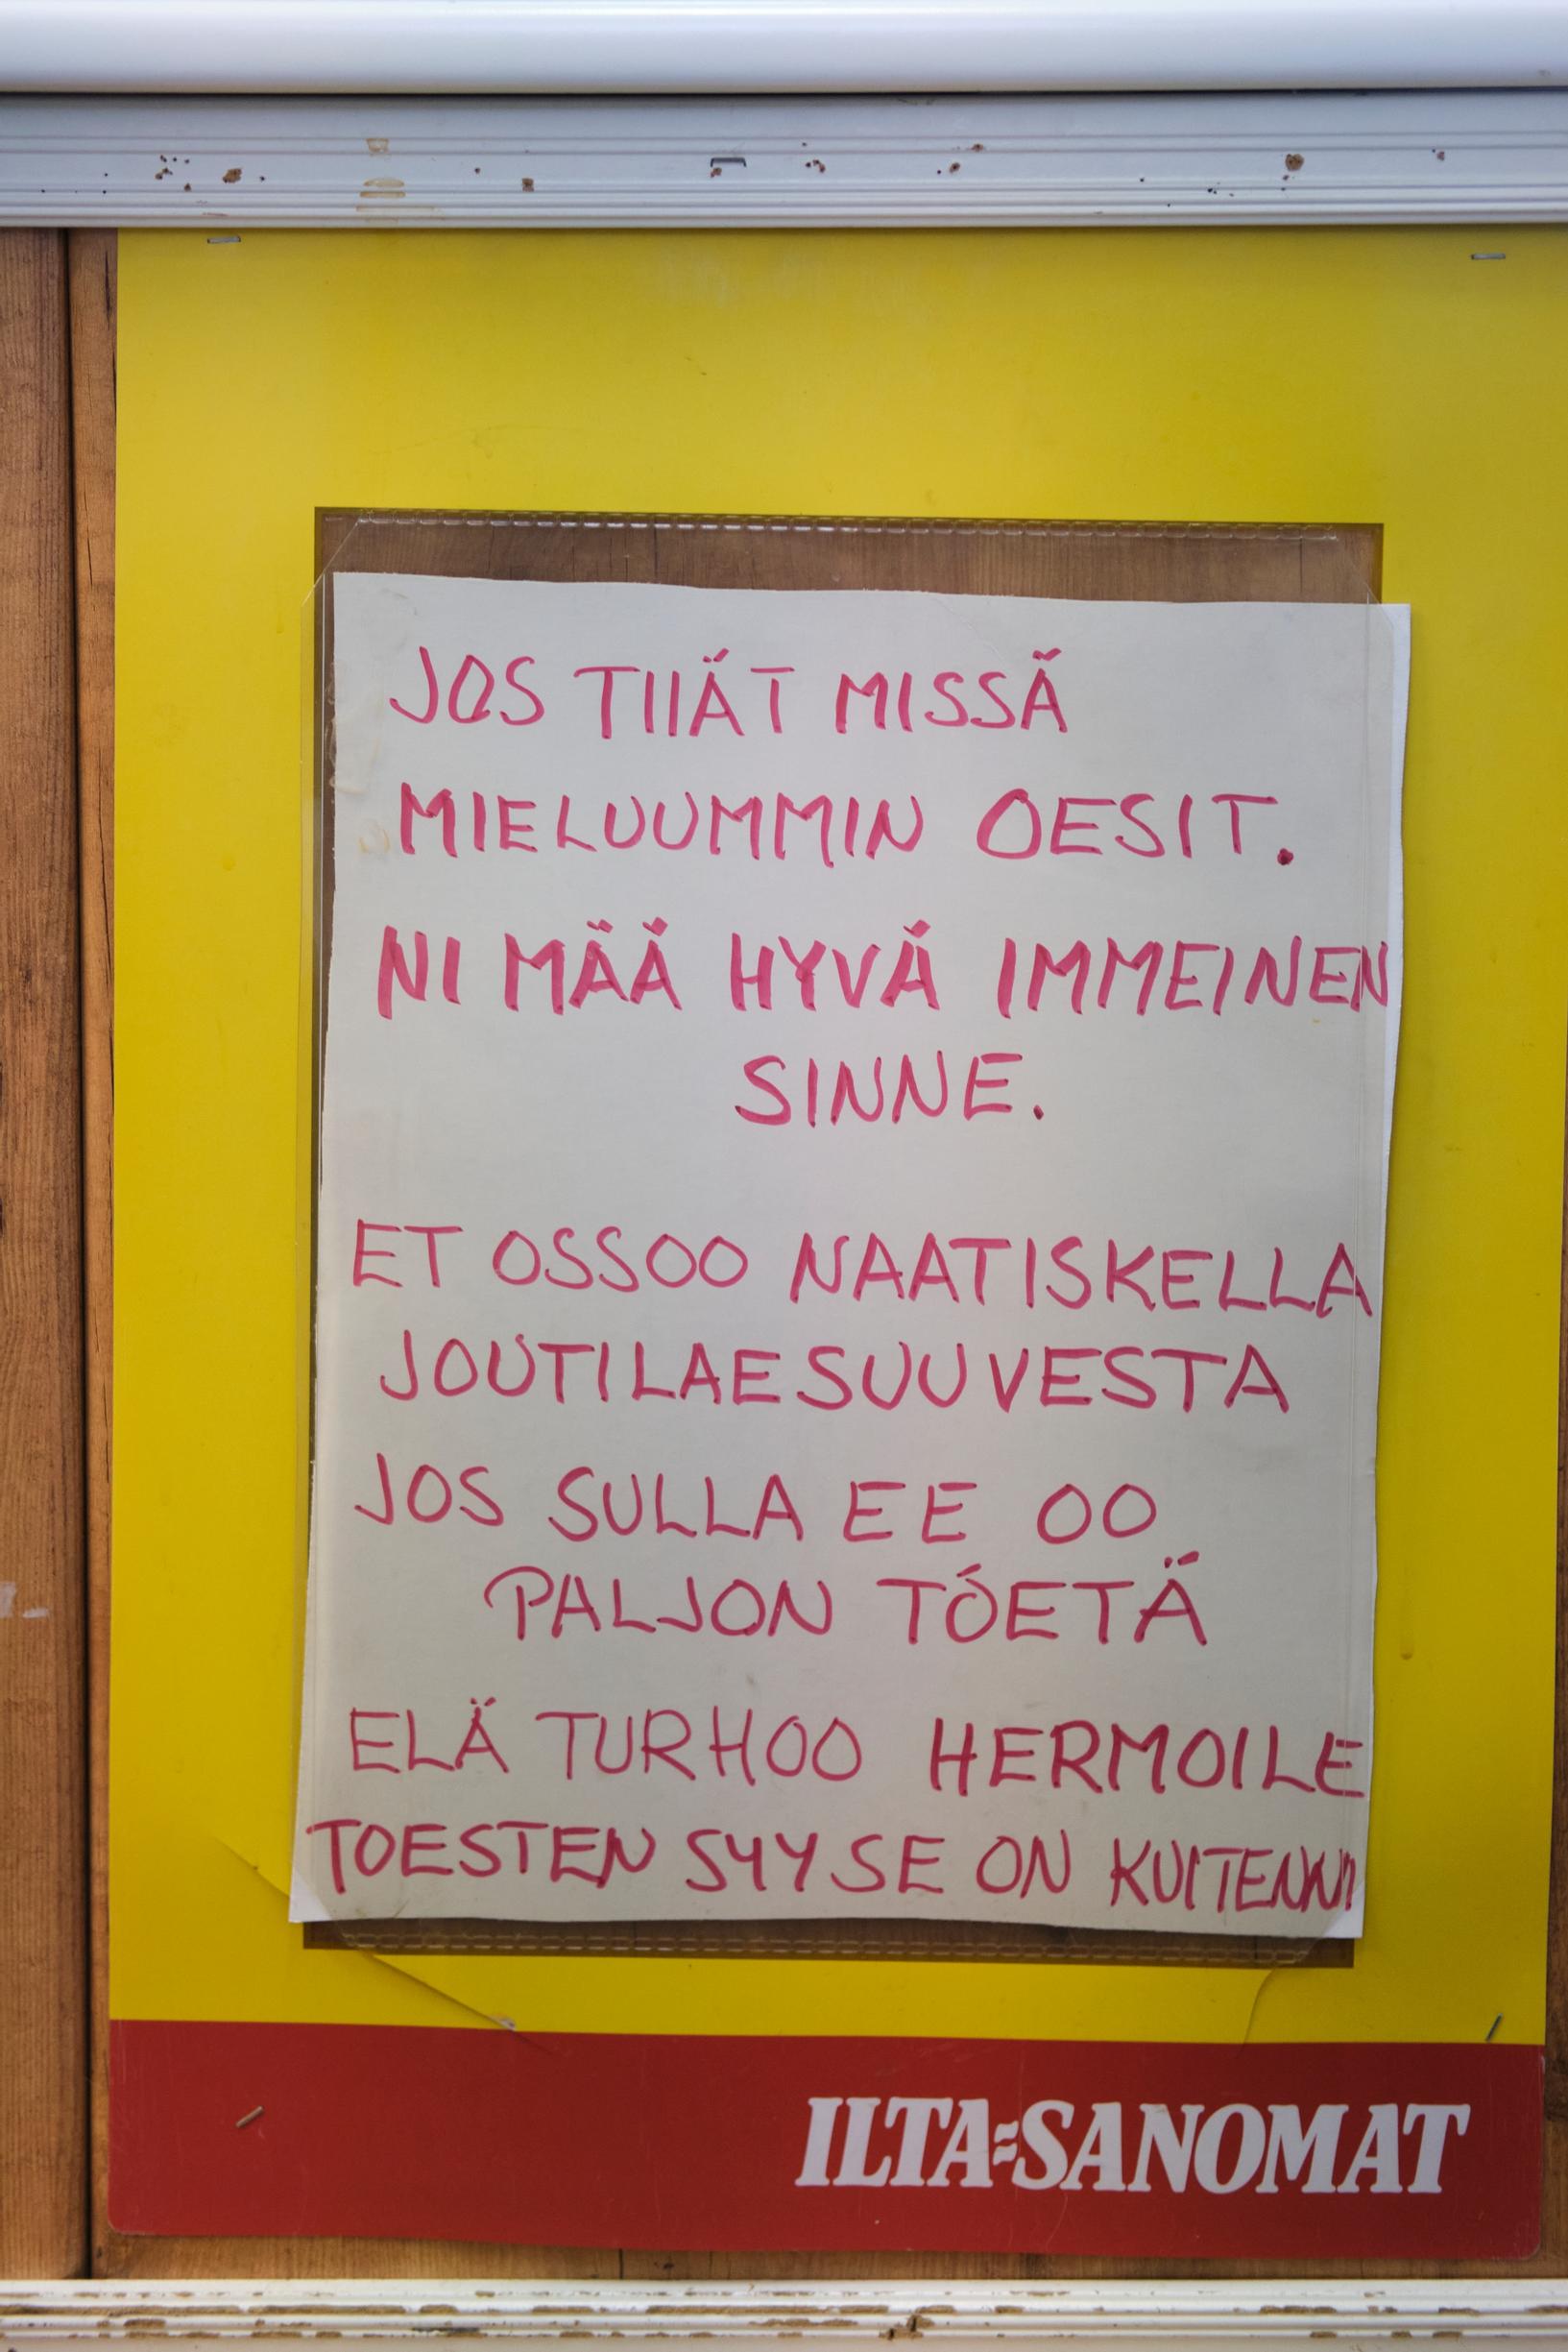 JOS TIIÄT MISSÄ
MIELUUMMIN OESIT.
NI MÄÄ HYVÄ IMMEINEN
SINNE.
ET OSSOO NAATISKELLA
JOUTILAESUUVESTA
JOS SULLA EE OO
PALJON TÖETÄ
ELÄ TURHOO HERMOILE
TOESTEN SYY SE ON KUITENKIN
ILTA=SANOMAT